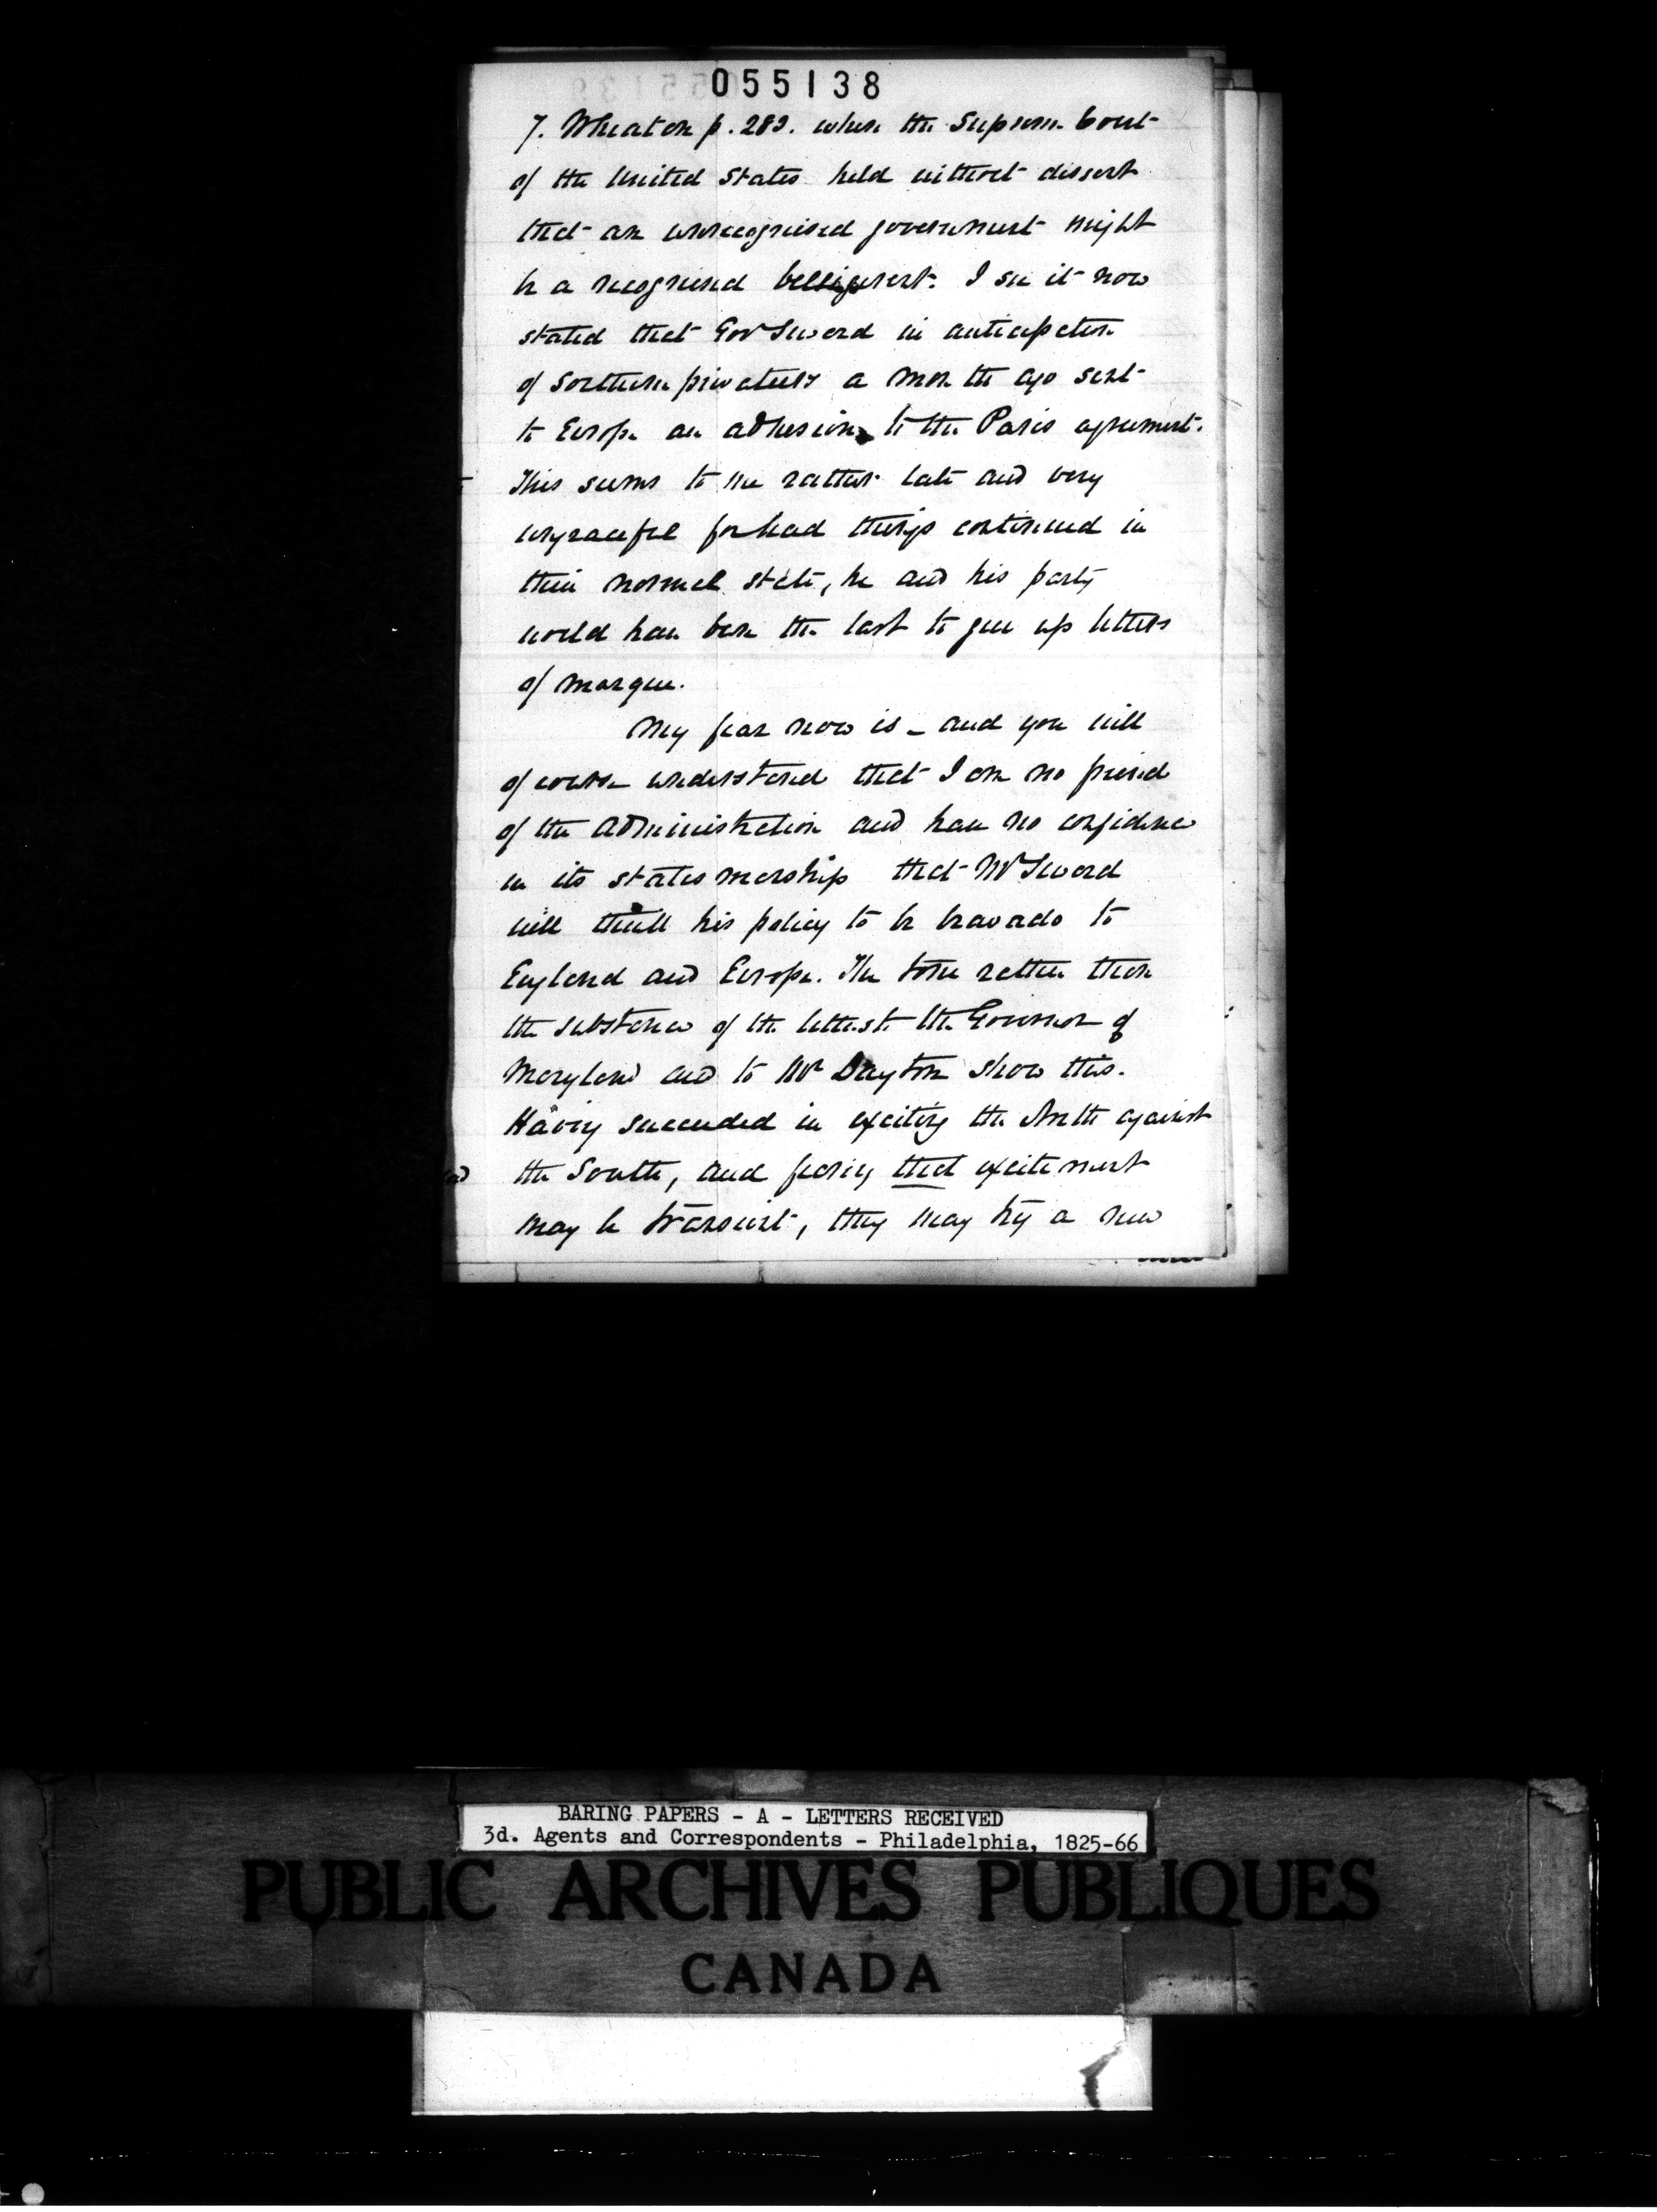 055138
7. Wheaton p. 283. when the Supreme Court
of the United States held without dissent
that an unrecognised government might
be a recognised belligerent. I see it now
stated that Gov Seward in anticipation
of Southern privateers a month ago sent
to Europe an adhesion to the Paris agreement.
This seems to me rather late and very
ungraceful for had things continued in
their normal state, he and his party
would have been the last to give up letters
of marque.
My fear now is - and you will
of course understand that I am no friend
of the administration and have no confidence
in its statesmanship that Mr Seward
will think his policy to be bravado to
England and Europe. The tone rather than
the substance of the letters to the Governor of
Maryland and to Mr Dayton show this.
Having succeeded in exciting the North against
the South, and fearing that excitement
may be transient, they may try a new
BARING PAPERS - A - LETTERS RECEIVED
3d. Agents and Correspondents - Philadelphia, 1825-66
PUBLIC ARCHIVES PUBLIQUES
CANADA